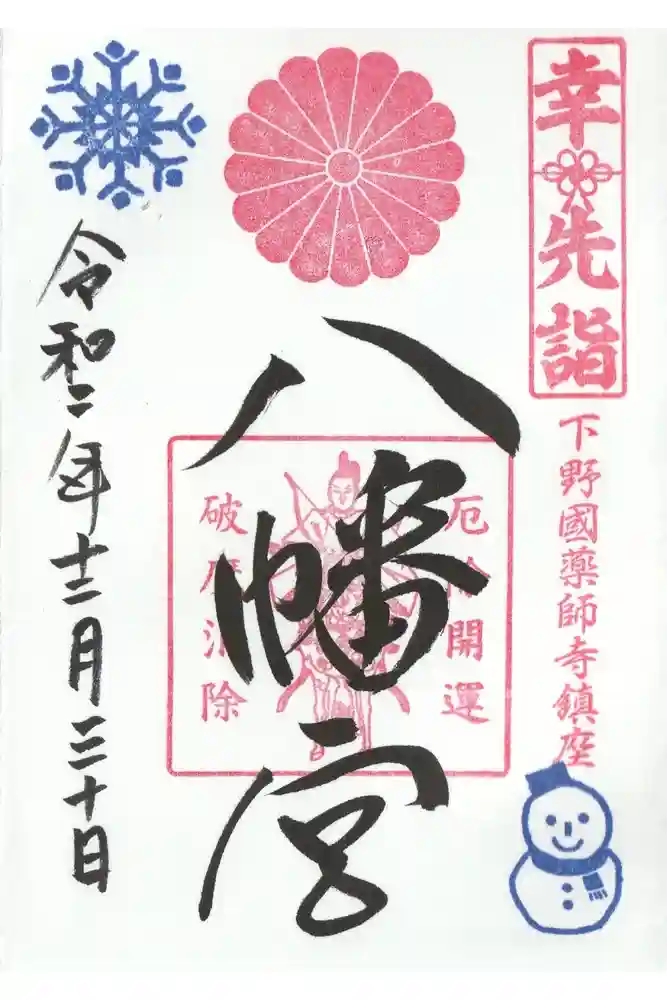 幸先詣
下野國薬師寺鎮座
八幡宮
厄除開運
破魔消除
令和二年十二月三十日